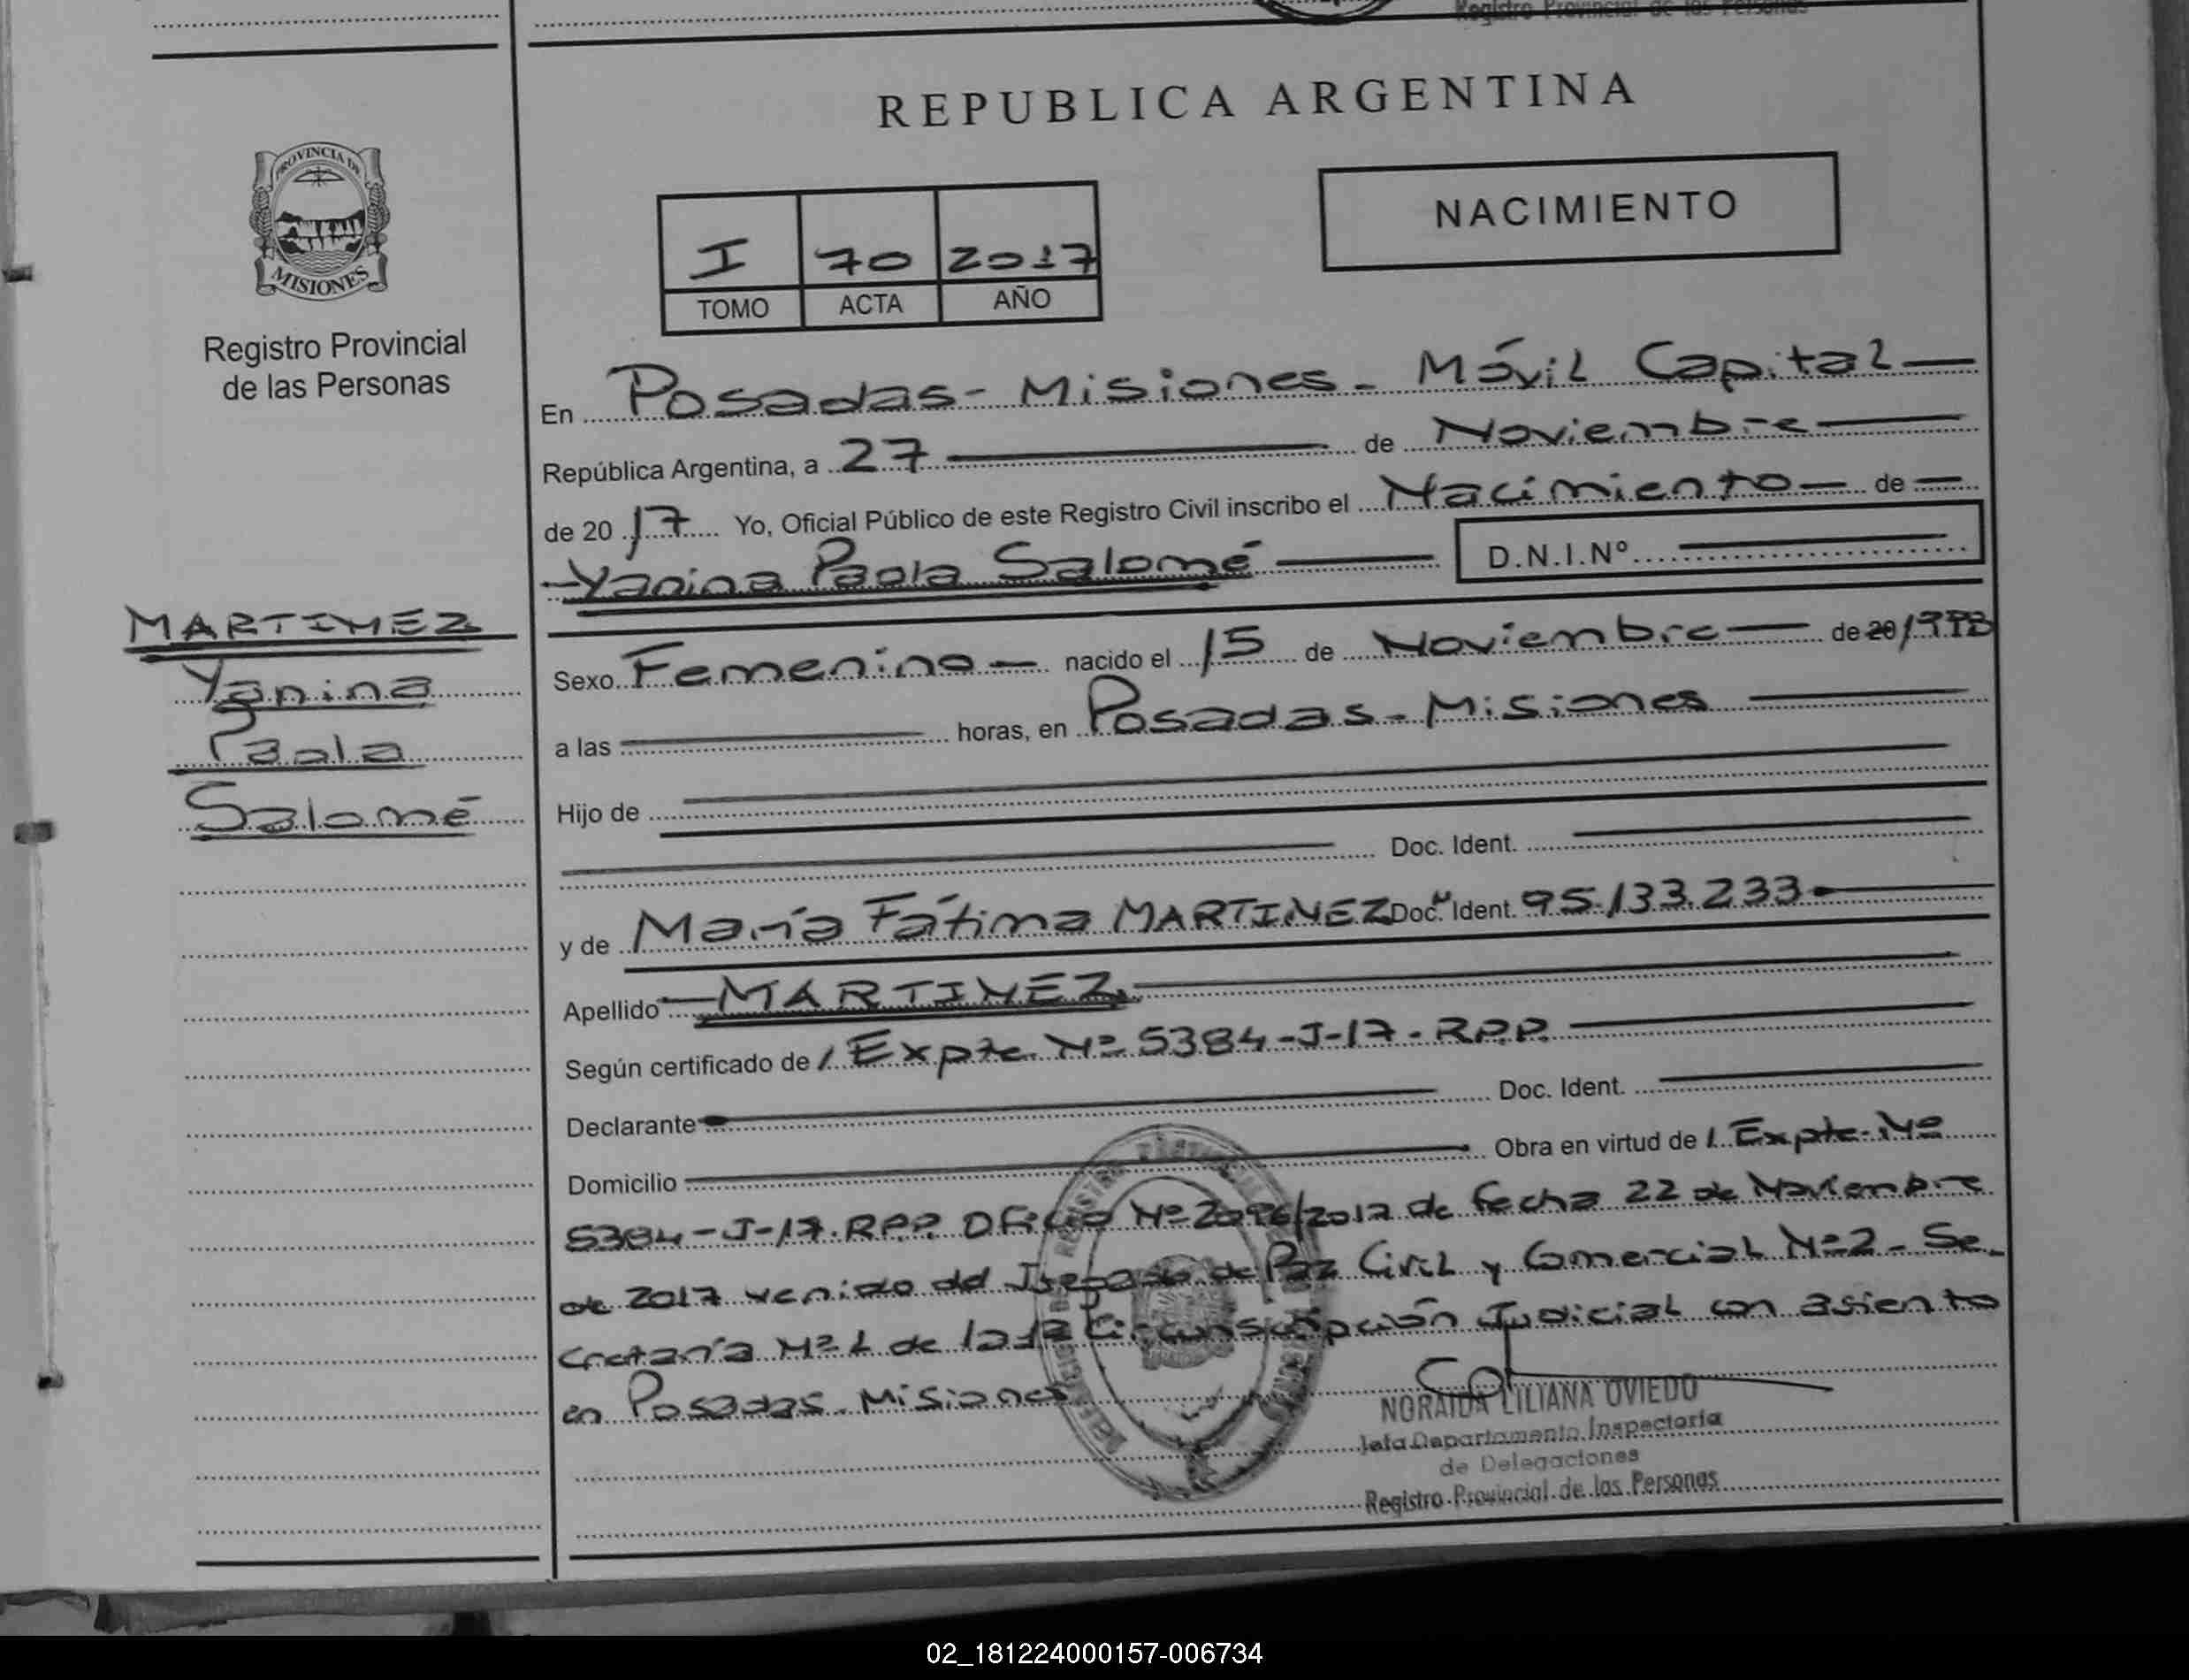 Registro Provincial de las Personas
REPUBLICA ARGENTINA
PROVINCIA DE
MISIONES
Registro Provincial
de las Personas
NACIMIENTO
I 70 2017
TOMO ACTA AÑO
En Posadas - Misiones - Móvil Capital
República Argentina, a 27 de Noviembre
de 2017 Yo, Oficial Público de este Registro Civil inscribo el Nacimiento de
Yanina Paola Salomé D.N.I.Nº
MARTINEZ
Yanina
Paola
Salomé
Sexo Femenino nacido el 15 de Noviembre de 20/1993
a las horas, en Posadas - Misiones
Hijo de
Doc. Ident.
y de María Fátima MARTINEZ Doc. Ident. 95.133.233
Apellido MARTINEZ
Según certificado de / Expte. Nº 5384-J-17-R.P.P.
Declarante Doc. Ident.
Domicilio Obra en virtud de / Expte. Nº
5384-J-17.R.P.P. Oficio Nº 2096/2017 de fecha 22 de Noviembre
de 2017 venido del Juzgado de Paz Civil y Comercial Nº 2 - Se-
cretaría Nº 1 de la 1ª Circunscripción Judicial con asiento
en Posadas - Misiones
NORAIDA LILIANA OVIEDO
Jefa Departamento Inspectoría
de Delegaciones
Registro Provincial de las Personas
02_181224000157-006734